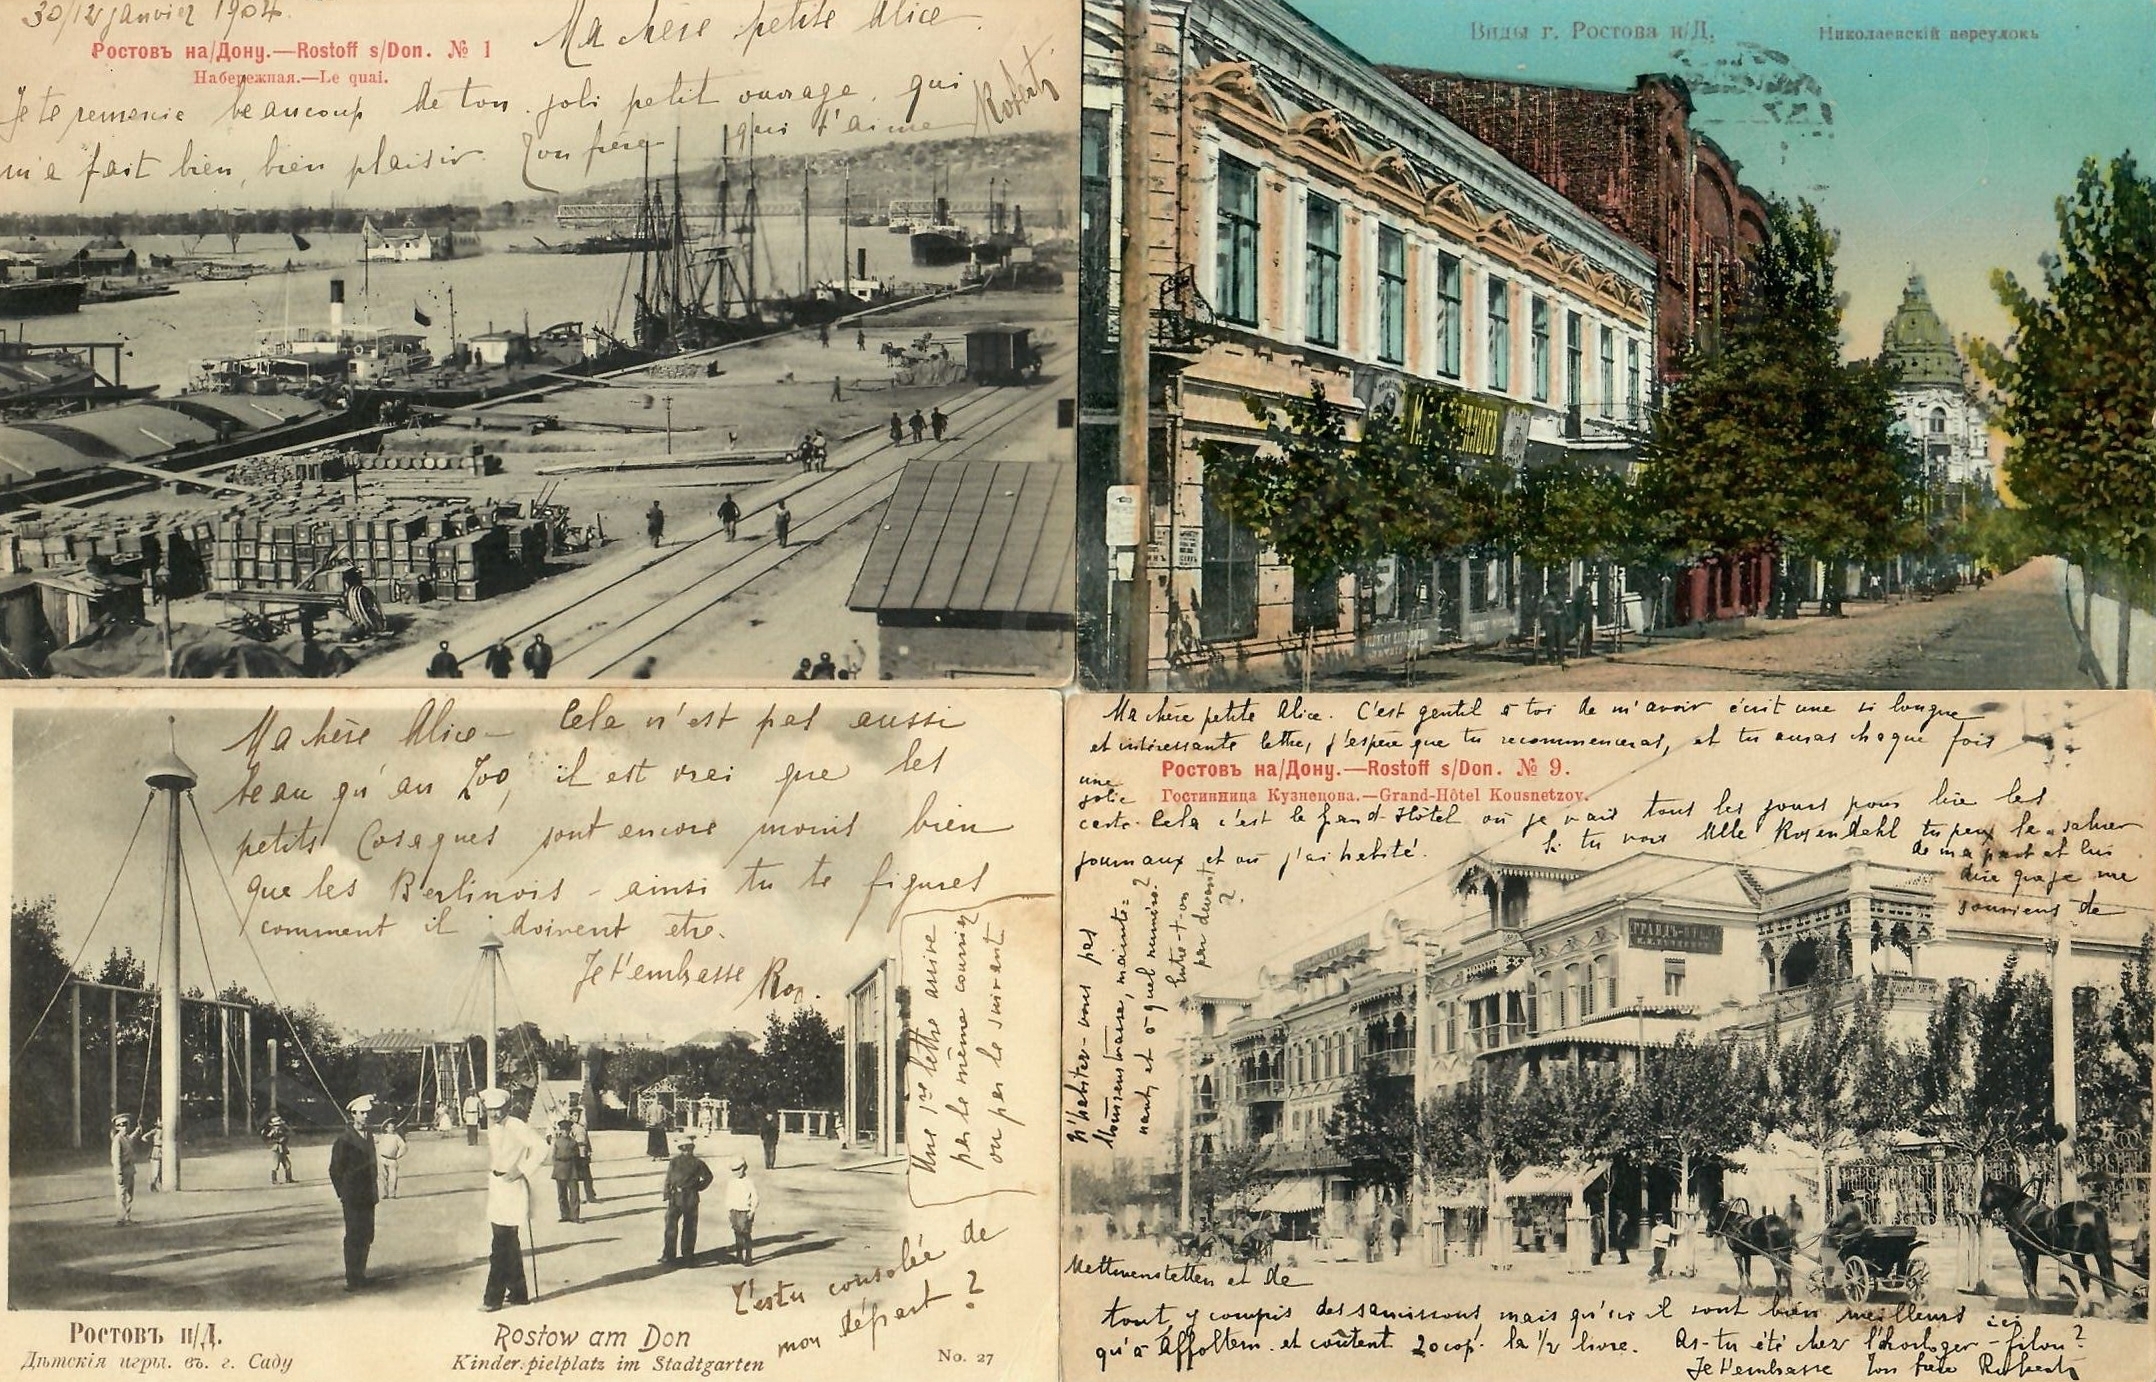 30/12 janvier 1904.
Ma chère petite Alice.
Ростовъ на/Дону.—Rostoff s/Don. № 1
Набережная.—Le quai.
Je te remercie beaucoup de ton joli petit ouvrage, qui
m'a fait bien, bien plaisir. Ton frère qui t'aime Robert
Виды г. Ростова н/Д. Николаевскій переулокъ
Ma chère Alice – Cela n'est pas aussi
beau qu'au Zoo, il est vrai que les
petits Cosaques sont encore moins bien
que les Berlinois – ainsi tu te figures
comment il doivent etre.
Je t'embrasse Rob.
Une 1re lettre arrive
par le même courrier
ou par le suivant
T'es tu consolée de
mon départ ?
Ростовъ н/Д.
Дѣтскія игры. въ. г. Саду
Rostow am Don
Kinderspielplatz im Stadtgarten
No. 27
Ma chère petite Alice. C'est gentil à toi de m'avoir écrit une si longue
et intéressante lettre, j'espère que tu recommenceras, et tu auras chaque fois
une
jolie
carte.
Ростовъ на/Дону.—Rostoff s/Don. № 9.
Гостинница Кузнецова.—Grand-Hôtel Kousnetzov.
Cela c'est le Grand-Hôtel où je vais tous les jours pour lire les
journaux et où j'ai habité.
Si tu vois Mlle Rosendahl tu peux la saluer
de ma part et lui
dire que je me
souviens de
N'habitez-vous pas
strasse, mainte=
nant, et à quel numéro?
Entre-t-on
par devant
?
Mettmenstetten et de
tout, y compris des saucissons mais qu'ici il sont bien meilleurs ici
qu'à Affoltern. et coûtent 20 cop. la 1/2 livre. As-tu été chez l'horloger-filou?
Je t'embrasse Ton frère Robert